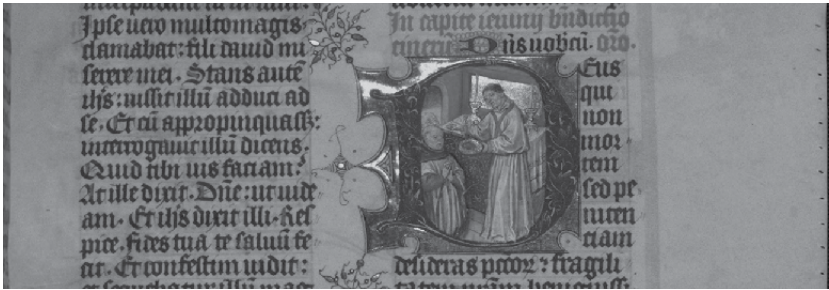 Ipse uero multomagis
clamabat: fili dauid mi
serere mei. Stans autē
ih̄s: iussit illū adduci ad
se. Et cū appropinquass̄:
interrogauit illū dicens.
Quid tibi uis faciam?
At ille dixit. Dn̄e: ut uide
am. Et ih̄s dixit illi. Res
pice. fides tua te saluū fe
cit. Et confestim uidit:
In capite ieiunij bn̄dictio
cinerū Dn̄s uobcū. oro.
DEus
qui
non
mor
tem
sed pe
niten
ciam
desideras pcc̄oꝝ: fragili